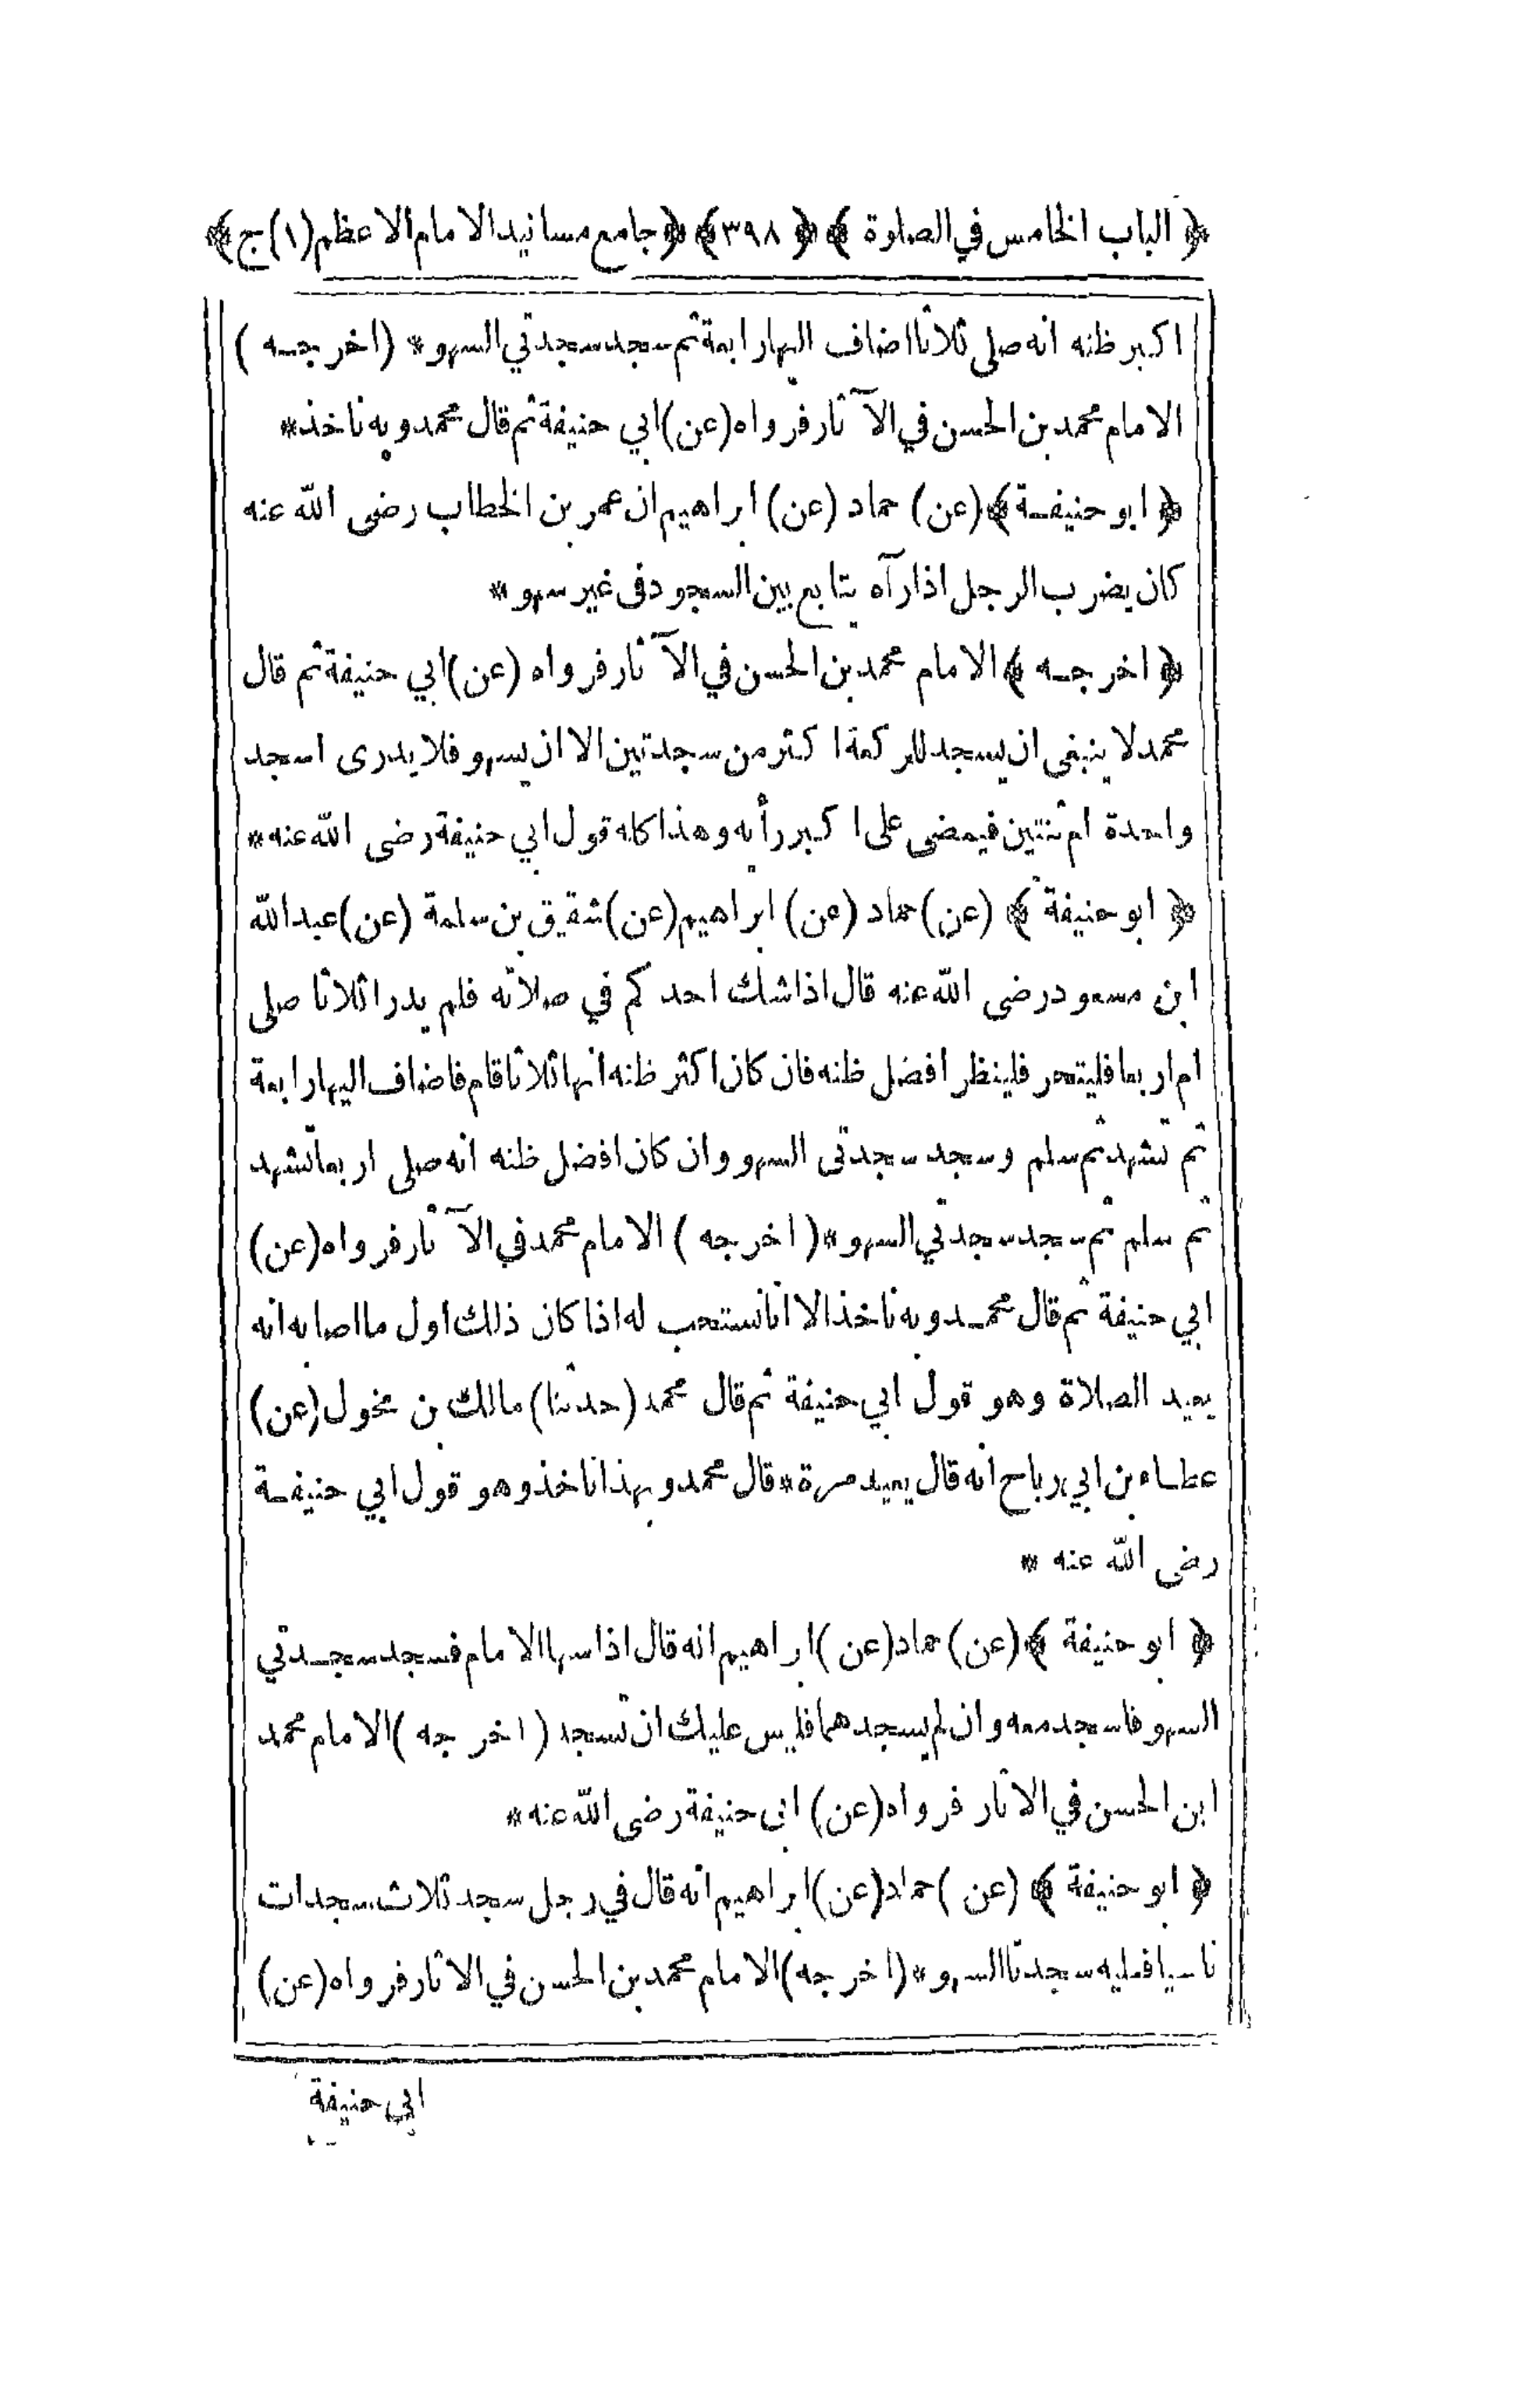 ﴿ الباب الخامس في الصلوة ﴾ ﴿ ٣٩٨ ﴾ ﴿ جامع مسانيد الامام الاعظم (١) ج ﴾
اكبر ظنه انه صلى ثلاثا اضاف اليها رابعة ثم سجد سجدتي السهو * (اخرجه)
الامام محمد بن الحسن في الآثار فرواه (عن) ابي حنيفة ثم قال محمد وبه ناخذ *
﴿ ابو حنيفة ﴾ (عن) حماد (عن) ابراهيم ان عمر بن الخطاب رضى الله عنه
كان يضرب الرجل اذا رآه يتابع بين السجود فى غير سهو *
﴿ اخرجه ﴾ الامام محمد بن الحسن في الآثار فرواه (عن) ابي حنيفة ثم قال
محمد لا ينبغى ان يسجد للركعة اكثر من سجدتين الا ان يسهو فلا يدرى اسجد
واحدة ام ثنتين فيمضى على اكبر رأيه وهذا كله قول ابي حنيفة رضى الله عنه *
﴿ ابو حنيفة ﴾ (عن) حماد (عن) ابراهيم (عن) شقيق بن سلمة (عن) عبد الله
ابن مسعود رضى الله عنه قال اذا شك احدكم في صلاته فلم يدر اثلاثا صلى
ام اربعا فليتحر فلينظر افضل ظنه فان كان اكثر ظنه انها ثلاثا قام فاضاف اليها رابعة
ثم تشهد ثم سلم وسجد سجدتى السهو وان كان افضل ظنه انه صلى اربعا تشهد
ثم سلم ثم سجد سجدتي السهو * (اخرجه) الامام محمد في الآثار فرواه (عن)
ابي حنيفة ثم قال محمد وبه ناخذ الا انا نستحب له اذا كان ذلك اول ما اصابه انه
يعيد الصلاة وهو قول ابي حنيفة ثم قال محمد (حدثنا) مالك بن مخول (عن)
عطاء بن ابي رباح انه قال يعيد مرة * قال محمد وبهذا ناخذ وهو قول ابي حنيفة
رضى الله عنه *
﴿ ابو حنيفة ﴾ (عن) حماد (عن) ابراهيم انه قال اذا سها الامام فسجد سجدتي
السهو فاسجد معه وان لم يسجدهما فليس عليك ان تسجد (اخرجه) الامام محمد
ابن الحسن في الاثار فرواه (عن) ابى حنيفة رضى الله عنه *
﴿ ابو حنيفة ﴾ (عن) حماد (عن) ابراهيم انه قال في رجل سجد ثلاث سجدات
ناسيا فعليه سجدتا السهو * (اخرجه) الامام محمد بن الحسن في الاثار فرواه (عن)
ابي حنيفة